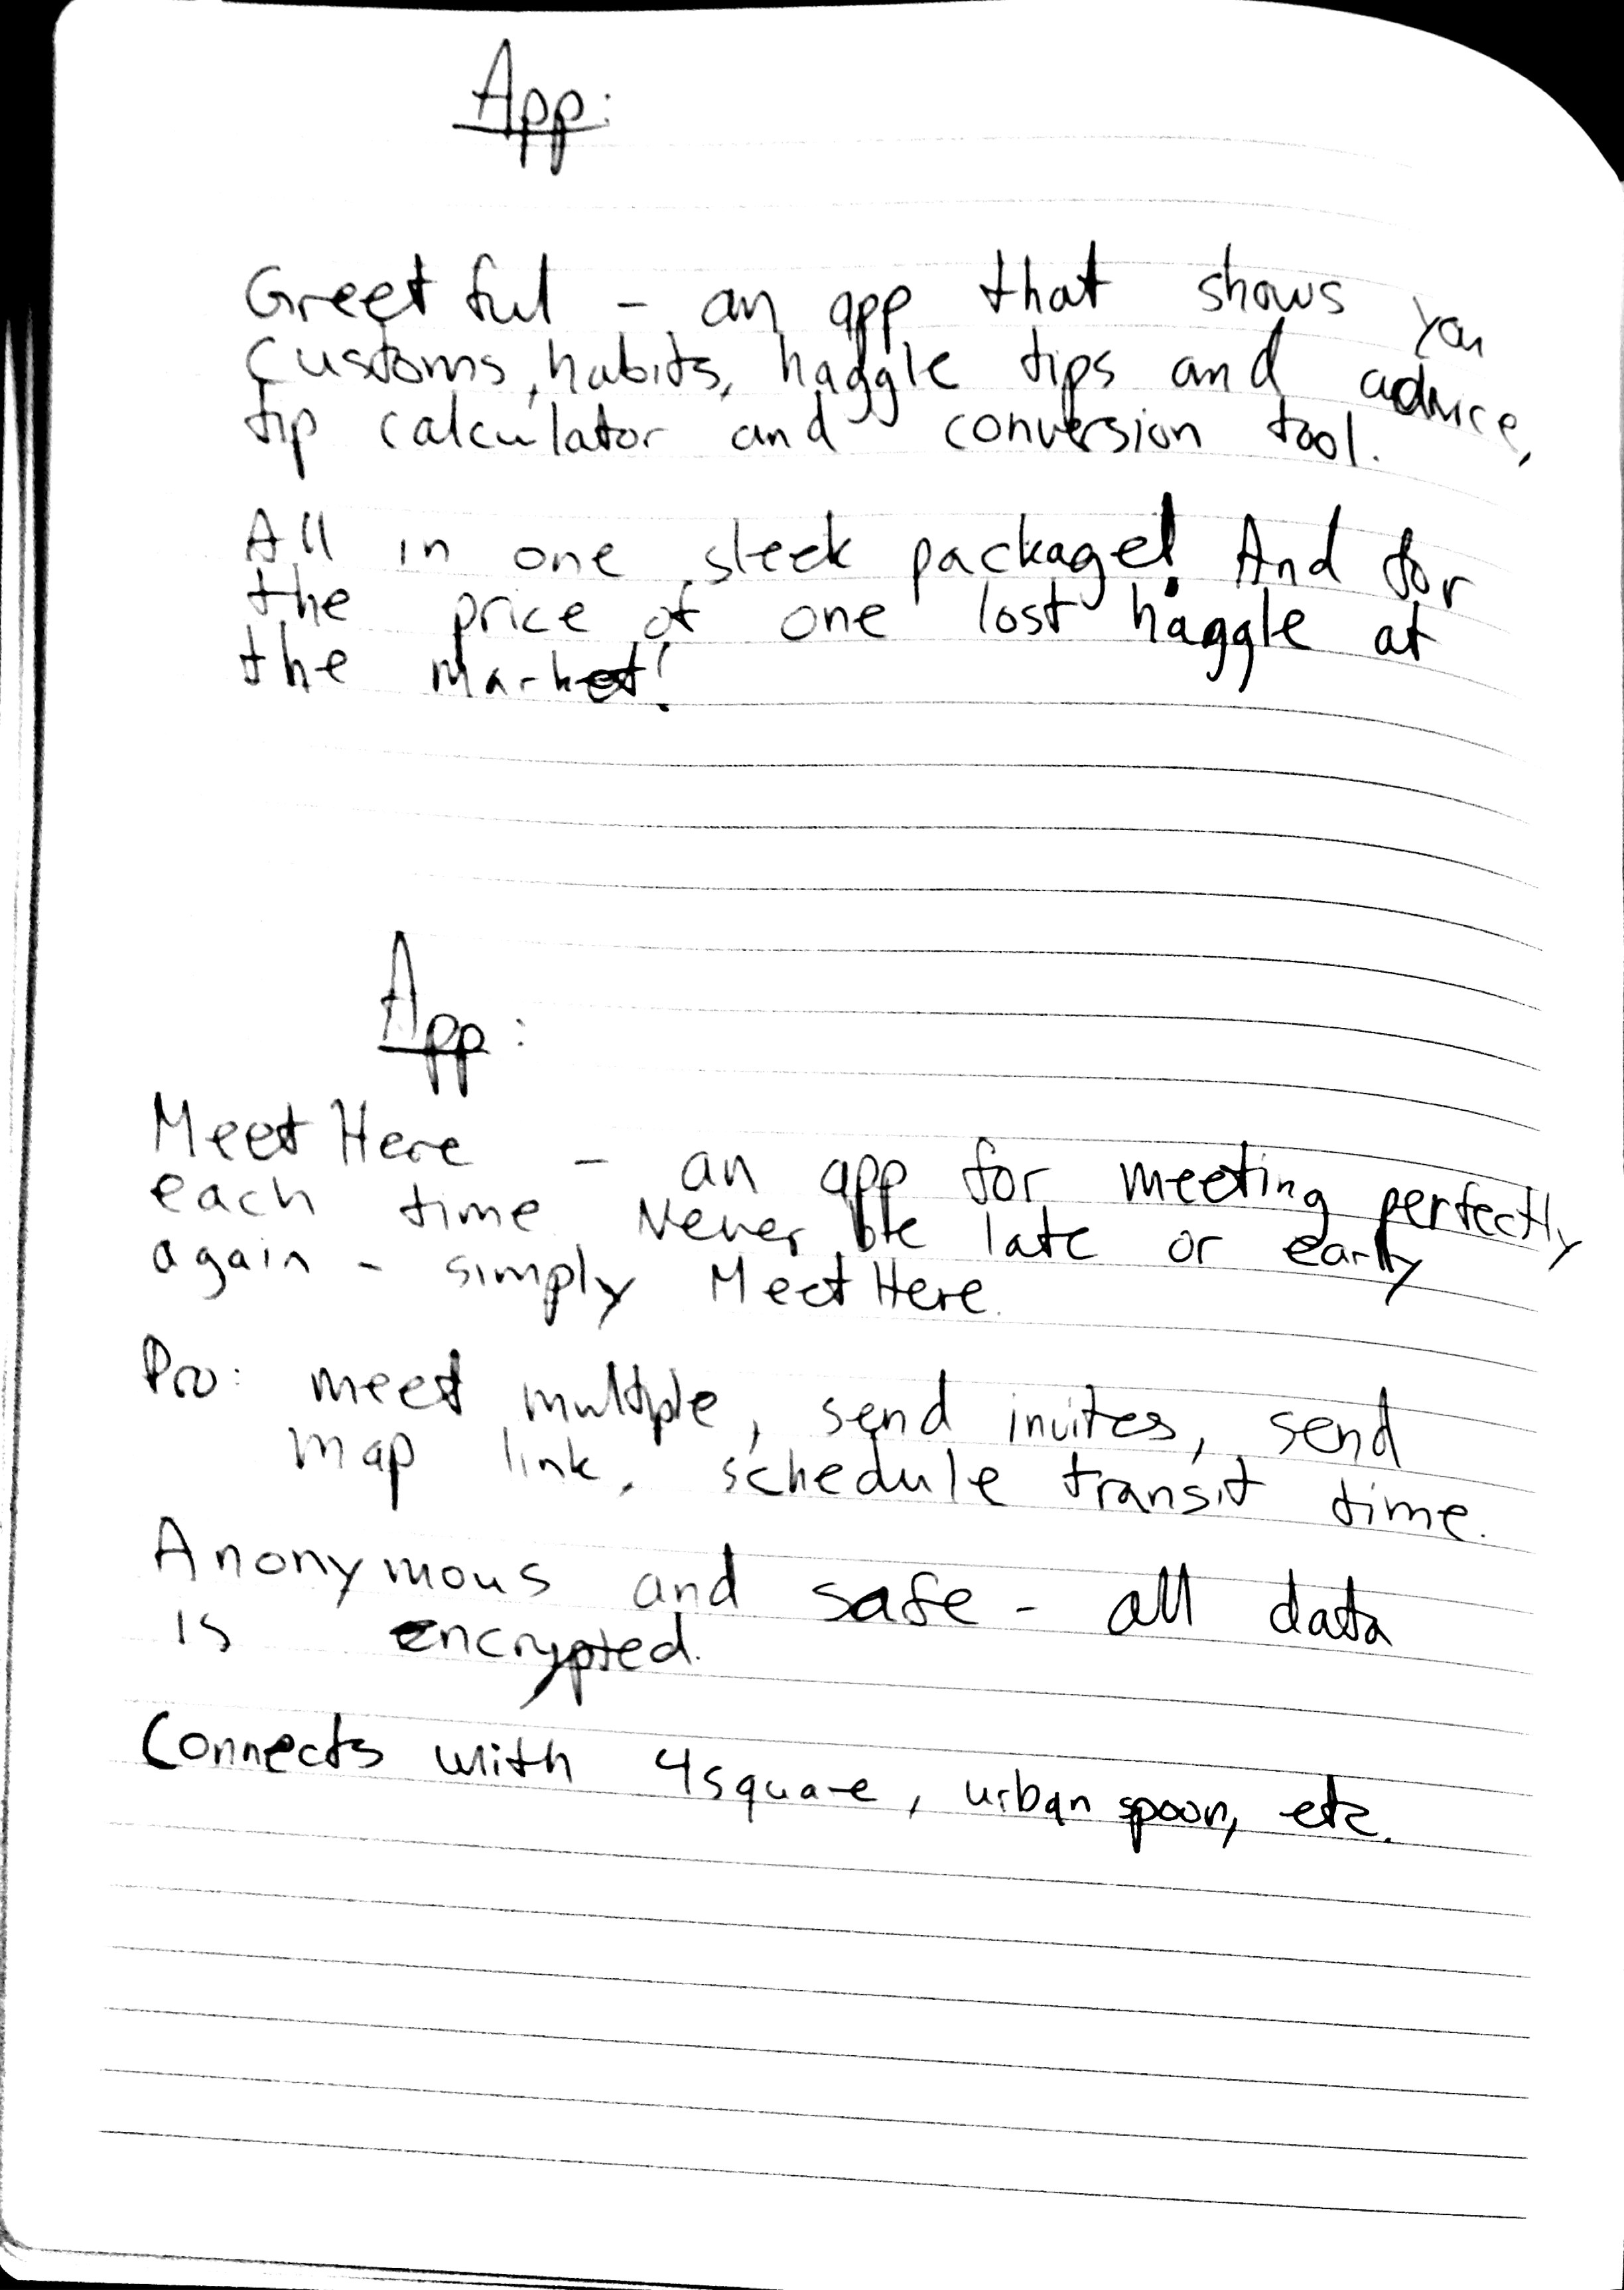 App:
Greetful - an app that shows you
customs, habits, haggle tips and advice,
tip calculator and conversion tool.
All in one sleek package! And for
the price of one lost haggle at
the market!
App:
MeetHere - an app for meeting perfectly
each time. Never be late or early
again - simply MeetHere.
Pro: meet multiple, send invites, send
map link, schedule transit time.
Anonymous and safe - all data
is encrypted.
Connects with 4square, urban spoon, etc.